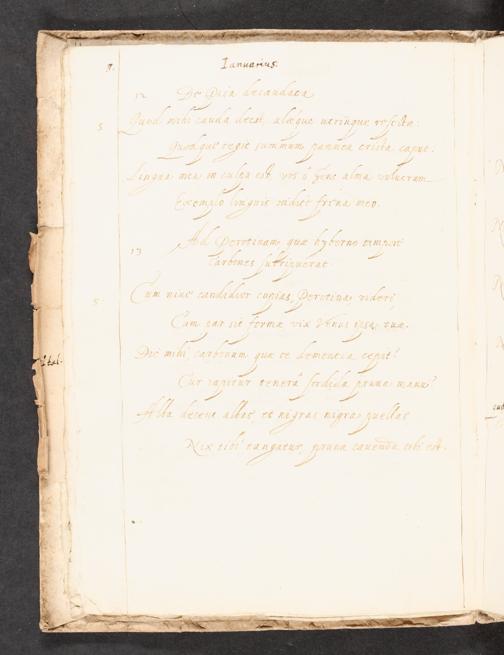 8. Ianuarius.
12 De Pica decaudata
5 Quod mihi cauda deest, alæque utrinque resectæ:
Quodque tegit summum pannea crista caput:
Lingua mea in culpa est. vos ô gens alma volucrum
Exemplo linguis indite frena meo.
13 Ad Perotinam quæ hyberno tempore
carbones subtinxerat.
5 Cum nive candidior cupias, Perotina, videri,
Cum par sit formæ vix Venus ipsa tuæ.
Dic mihi carbonum quæ te dementia cepit?
Cur rapitur tenerâ sordida pruna manu?
Alba decent albas, et nigras nigra puellas
Nix tibi tangatur, pruna cavenda tibi est.